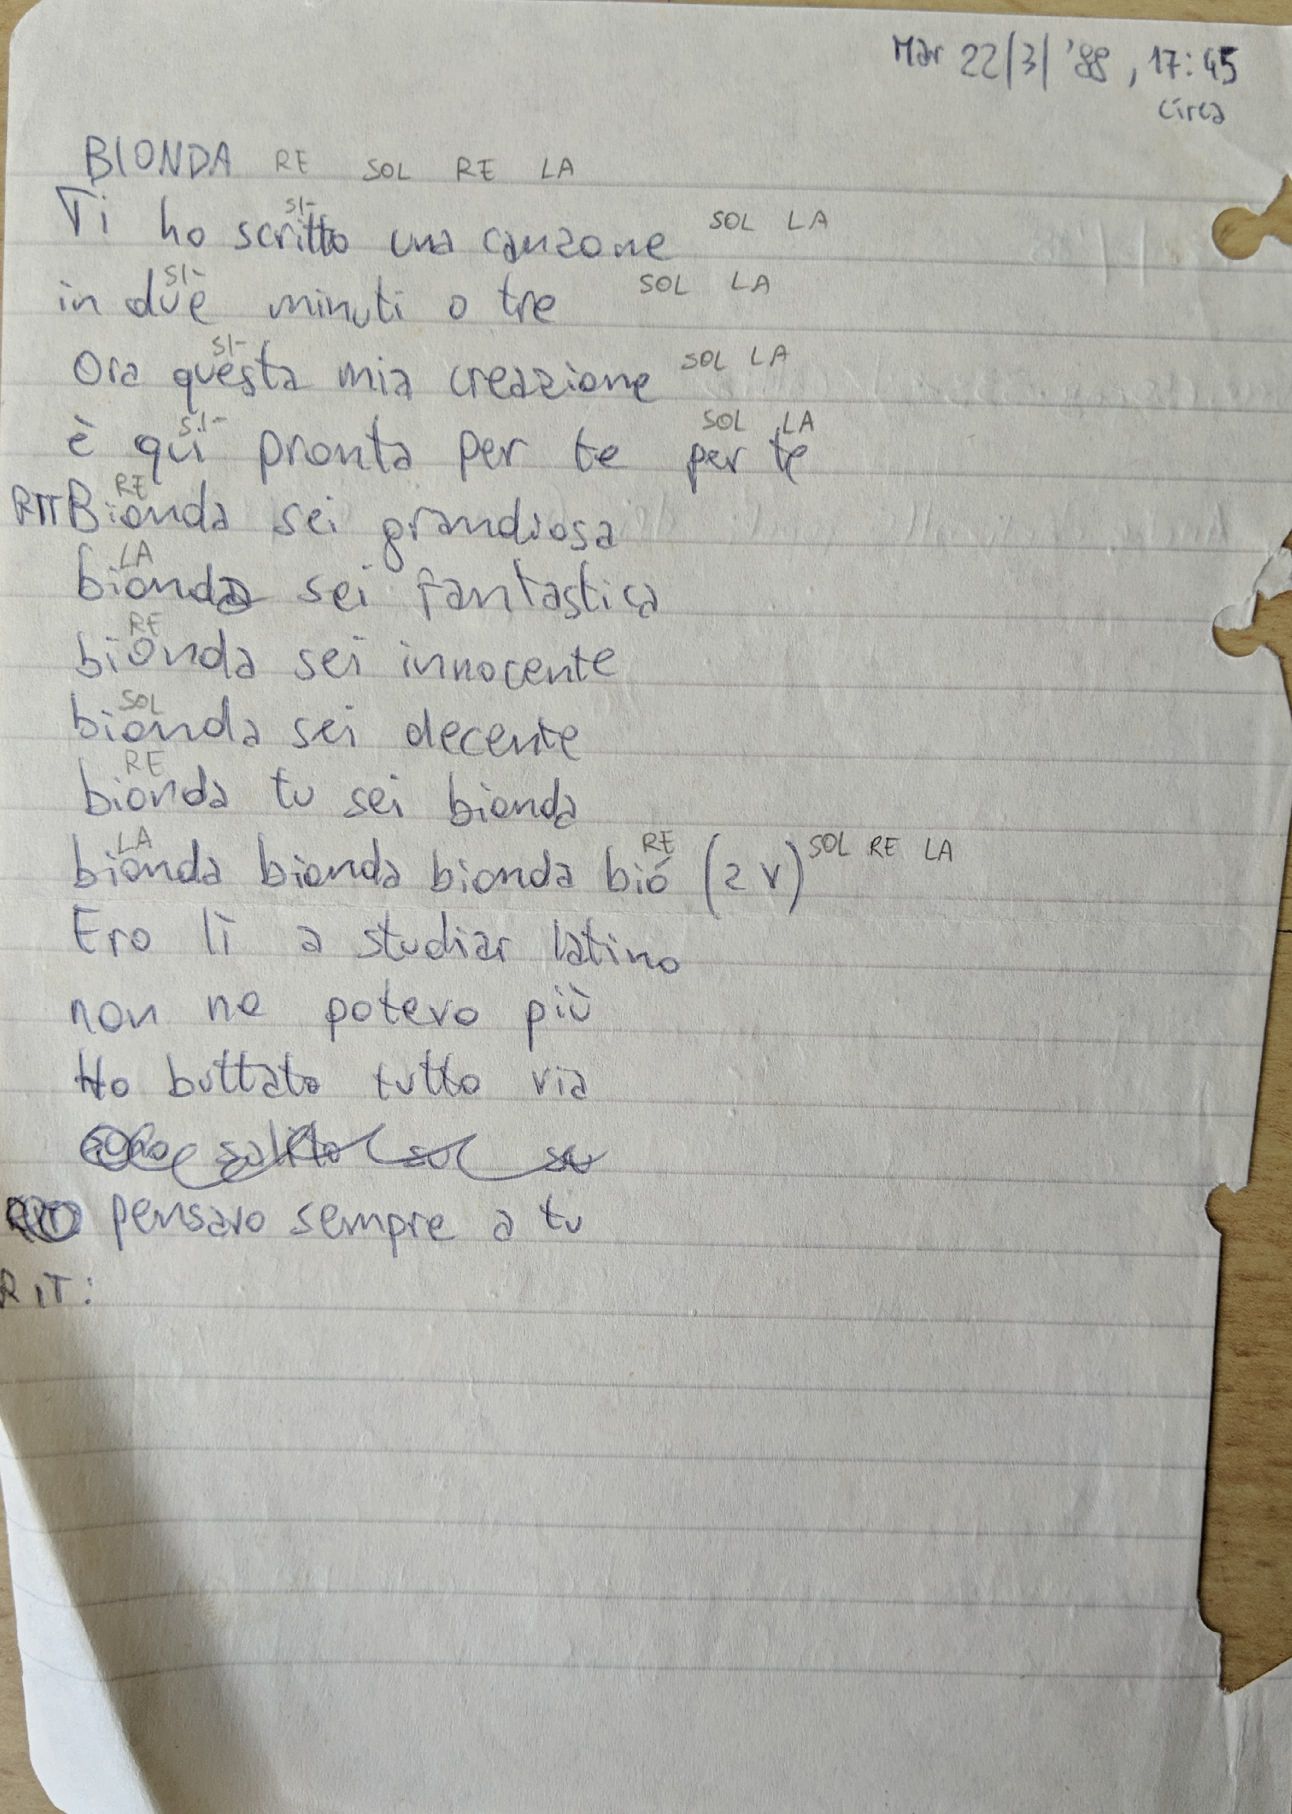 Mar 22/3/'88, 17:45
circa
BIONDA RE SOL RE LA
SI- SOL LA
Ti ho scritto una canzone
SI- SOL LA
in due minuti o tre
SI- SOL LA
Ora questa mia creazione
SI- SOL LA
è qui pronta per te per te
RE
RIT Bionda sei grandiosa
LA
bionda sei fantastica
RE
bionda sei innocente
SOL
bionda sei decente
RE
bionda tu sei bionda
LA RE SOL RE LA
bionda bionda bionda bió (2 V)
Ero lì a studiar latino
non ne potevo più
Ho buttato tutto via
pensavo sempre a tu
RIT: